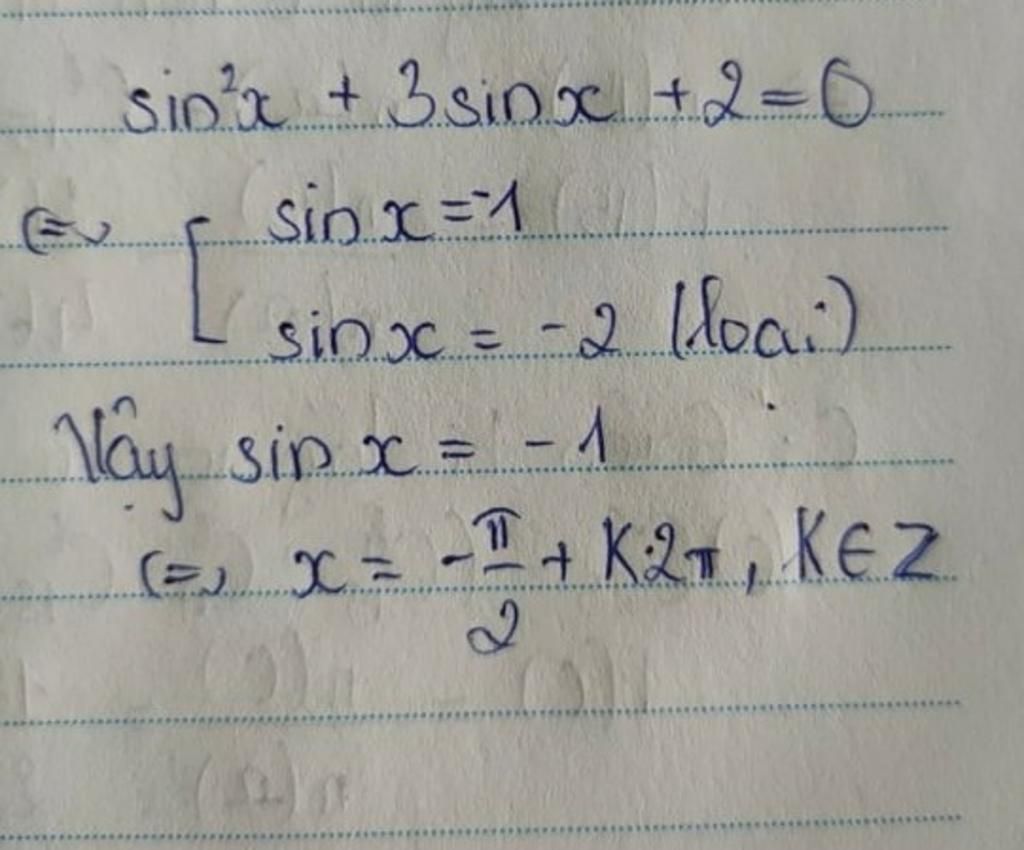 sin²x + 3sinx + 2 = 0
<=> [ sin x = -1
sin x = -2 (loại)
Vậy sin x = -1
<=> x = -π/2 + K2π, K∈Z